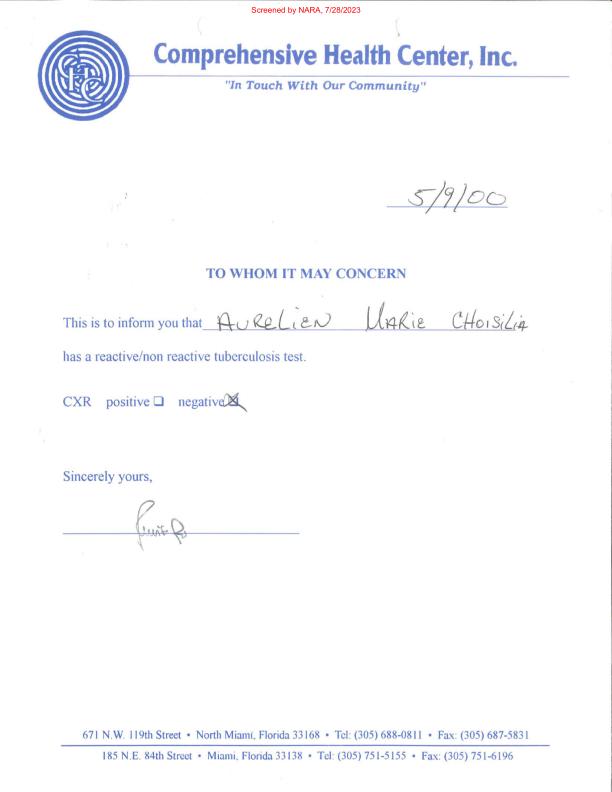 Screened by NARA, 7/28/2023
Comprehensive Health Center, Inc.
"In Touch With Our Community"
5/9/00
TO WHOM IT MAY CONCERN
This is to inform you that AURELIEN MARIE CHOISILIA
has a reactive/non reactive tuberculosis test.
CXR positive ☐ negative ☒
Sincerely yours,
671 N.W. 119th Street • North Miami, Florida 33168 • Tel: (305) 688-0811 • Fax: (305) 687-5831
185 N.E. 84th Street • Miami, Florida 33138 • Tel: (305) 751-5155 • Fax: (305) 751-6196